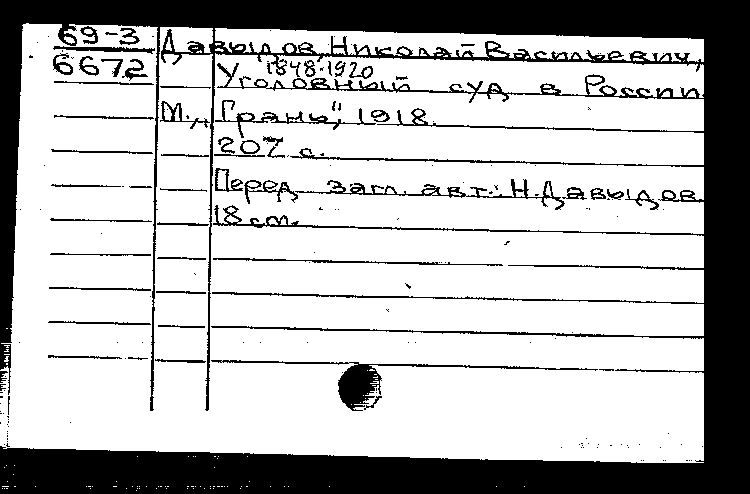 69-3 Давыдов, Николай Васильевич,
6672 1848-1920
Уголовный суд в России.
М., "Грань", 1918.
207 с.
Перед загл. авт.: Н. Давыдов.
18 см.